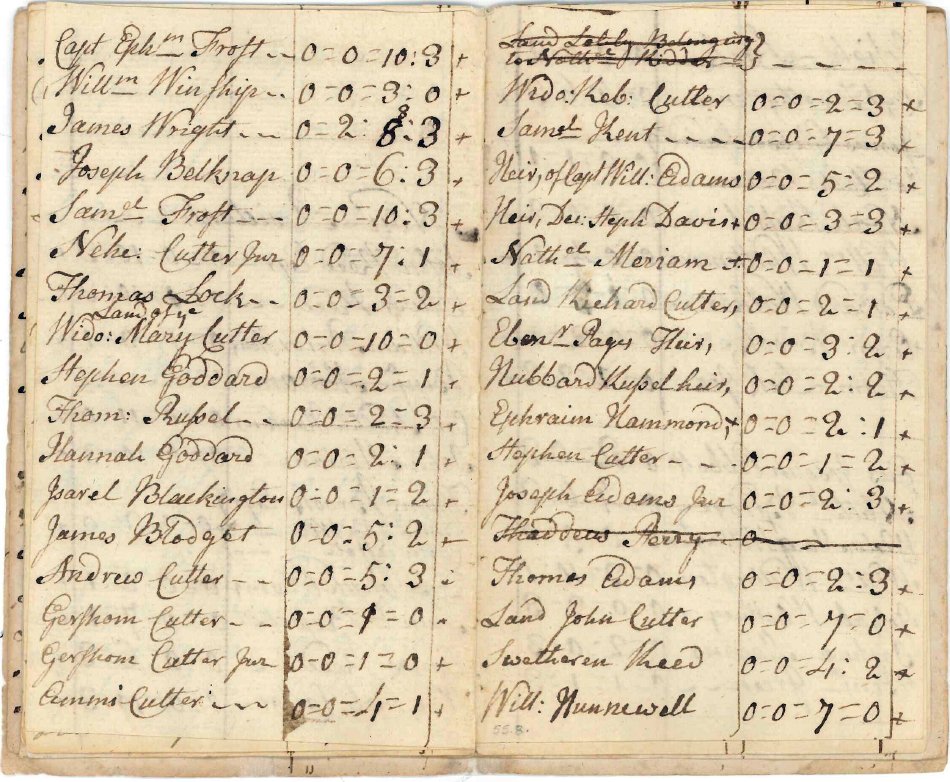 Capt Ephm Frost -- 0=0=10:3 +
Willm Winship -- 0=0=3:0 +
James Wright -- 0=2: 8:3 +
Joseph Belknap 0=0=6:3 +
Samel Frost -- 0=0=10:3 +
Nehe: Cutter Jur 0=0=7:1 +
Thomas Lock -- 0=0=3=2 +
Land of ye
Wido: Mary Cutter 0=0=10=0 +
Stephen Goddard 0=0=2=1 +
Thom: Russel -- 0=0=2=3 +
Hannah Goddard 0=0=2:1 +
Isarel Blackington 0=0=1=2 +
James Blodget 0=0=5:2 +
Andrew Cutter -- 0=0=5:3
Gershom Cutter -- 0=0=1=0
Gershom Cutter Jur 0=0=1=0 +
Ammi Cutter -- 0=0=4=1 +
Land Belonging
to Nathel Kidder
Wido: Reb: Cutter 0=0=2=3 +
Samel Kent ---- 0=0=7=3 +
Heirs of Capt Will: Adams 0=0=5=2 +
Heirs Dec: Steph Davis + 0=0=3=3 +
Nathel Merriam + 0=0=1=1 +
Land Richard Cutter, 0=0=2=1 +
Ebenr Pages Heirs 0=0=3:2 +
Hubbard Russel heirs 0=0=2:2 +
Ephraim Hammond, + 0=0=2:1 +
Stephen Cutter - - 0=0=1=2 +
Joseph Adams Jur 0=0=2:3 +
Thaddeus Perry 0
Thomas Adams 0=0=2=3 +
Land John Cutter 0=0=7=0 +
Swetheren Reed 0=0=4:2 +
Will: Hunnewell 0=0=7=0 +
55.8.